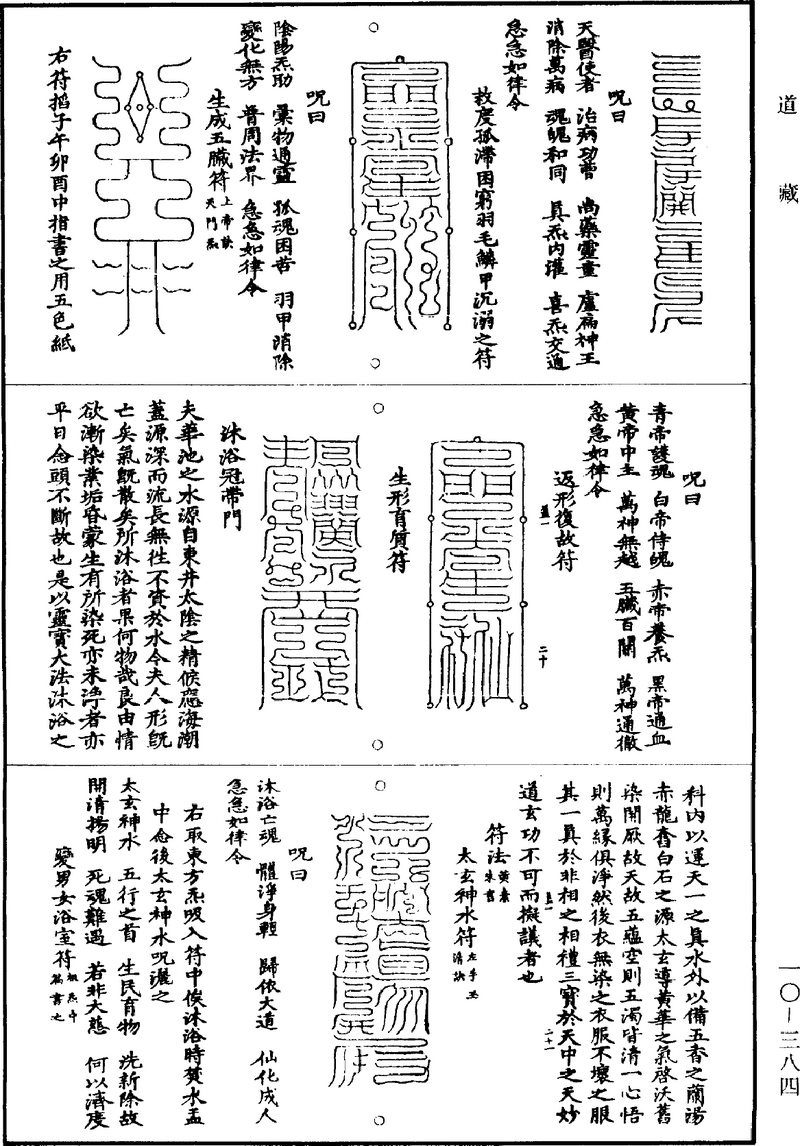 道藏
一〇—三八四
呪曰
天醫使者　治病功曹　尚藥靈童　盧扁神王
消除萬病　魂魄和同　真炁內灌　喜炁交通
急急如律令
救度孤滯困窮羽毛鱗甲沉溺之符
呪曰
陰陽炁助　稟物通靈　孤魂困苦　羽甲消除
變化無方　普周法界　急急如律令
生成五臟符上帝訣天門炁
右符掐子午卯酉中指書之用五色紙
呪曰
青帝護魂　白帝侍魄　赤帝養炁　黑帝通血
黄帝中主　萬神無越　五臟百關　萬神通徹
急急如律令
返形復故符
五一
二十
生形育質符
沐浴冠帶門
夫華池之水源自東井太陰之精候應海潮
蓋源深而流長無往不資於水今夫人形旣
亡矣氣旣散矣所沐浴者果何物哉良由情
欲漸染業垢昏蒙生有所染死亦未淨者亦
平日念頭不斷故也是以靈寳大法沐浴之
科内以運天一之真水外以備五香之蘭湯
赤龍㪺白石之源太玄導黄華之氣啓沃舊
染開厥故天故五蘊空則五濁皆清一心悟
則萬緣俱淨然後衣無染之衣服不壞之服
其一真於非相之相禮三寳於天中之天妙
五一
二十一
道玄功不可而擬議者也
符法黄素朱書
太玄神水符左手玉清訣
呪曰
沐浴亡魂　體淨身輕　歸依大道　仙化成人
急急如律令
右取東方炁吸入符中俟沐浴時焚水盂
中念後太玄神水呪灑之
太玄神水　五行之首　生民育物　洗新除故
開清揚明　死魂難遇　若非大慈　何以濟度
變男女浴室符